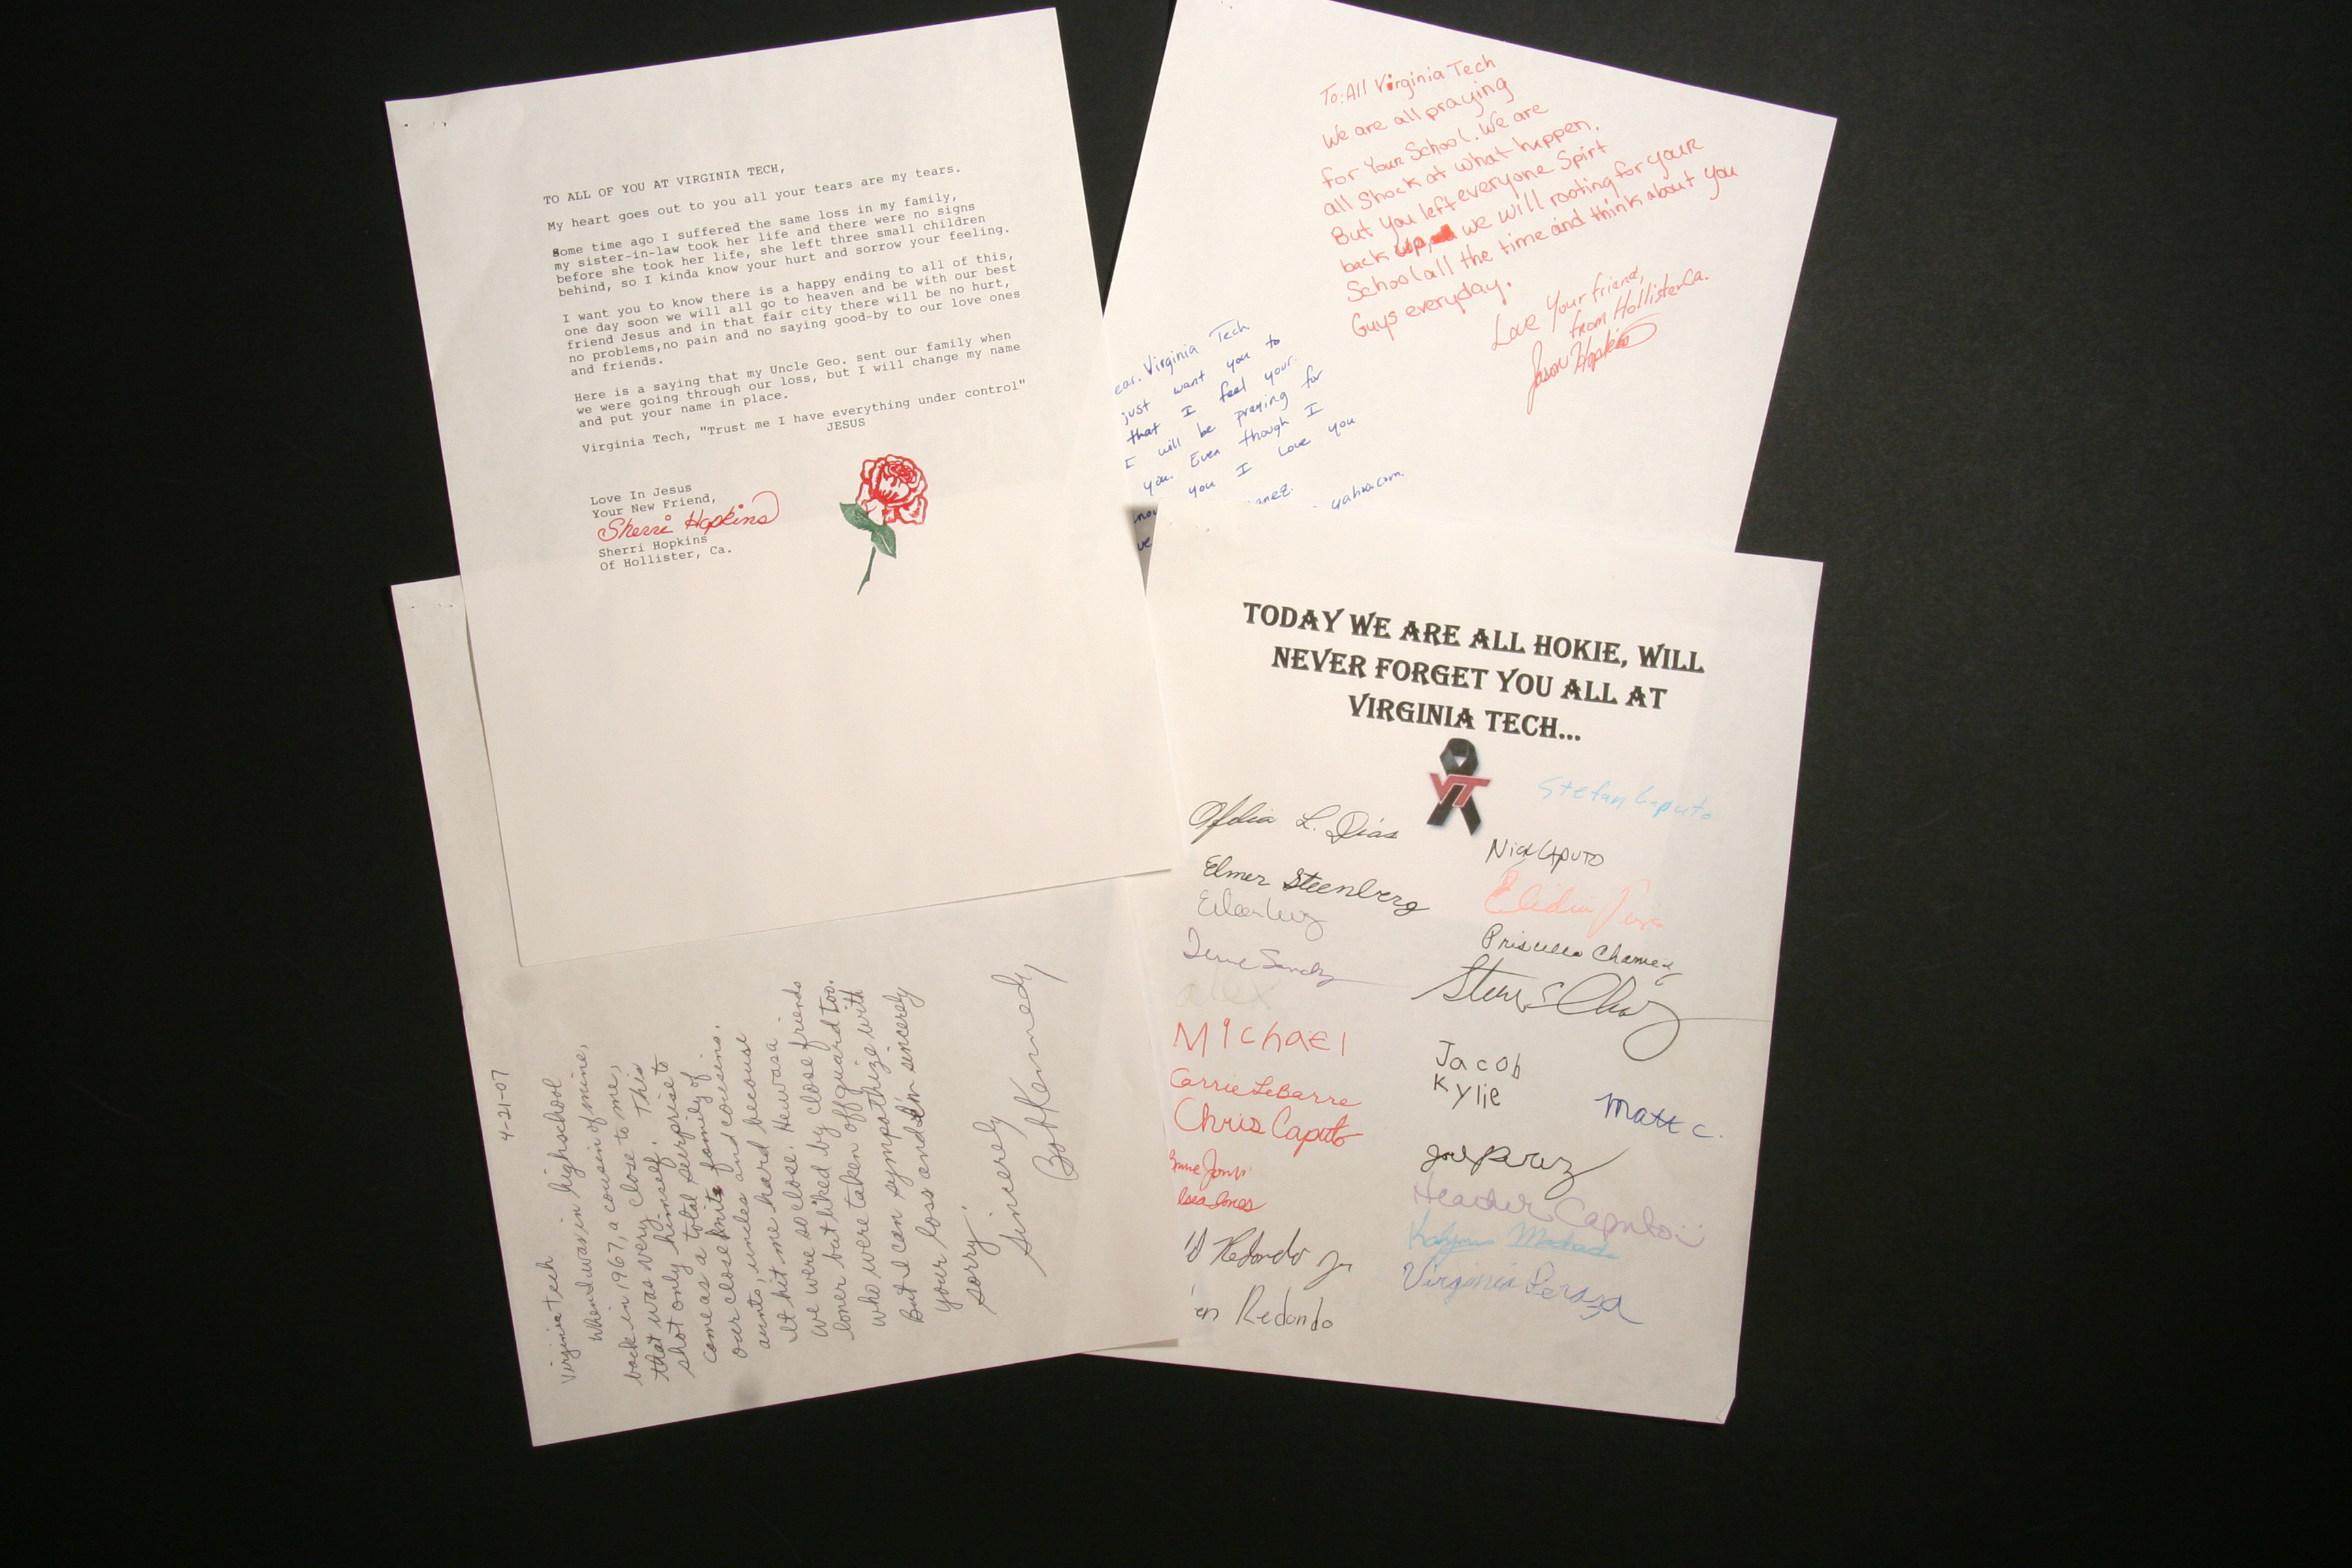 TO ALL OF YOU AT VIRGINIA TECH,
My heart goes out to you all your tears are my tears.
Some time ago I suffered the same loss in my family,
my sister-in-law took her life and there were no signs
before she took her life, she left three small children
behind, so I kinda know your hurt and sorrow your feeling.
I want you to know there is a happy ending to all of this,
one day soon we will all go to heaven and be with our best
friend Jesus and in that fair city there will be no hurt,
no problems,no pain and no saying good-by to our love ones
and friends.
Here is a saying that my Uncle Geo. sent our family when
we were going through our loss, but I will change my name
and put your name in place.
Virginia Tech, "Trust me I have everything under control"
JESUS
Love In Jesus
Your New Friend,
Sherri Hopkins
Sherri Hopkins
Of Hollister, Ca.
To: All Virginia Tech
We are all praying
for Your School. We are
all Shock at what happen.
But you left everyone Spirt
back up, we will rooting for your
School all the time and think about you
Guys everyday.
Love Your friend,
from Hollister Ca.
Jason Hopkins
ear. Virginia Tech
just want you to
that I feel your
I will be praying for
you. Even though I
you I Love you
yahoo.com.
4-21-07
Virginia Tech
When I was in highschool
back in 1967, a cousin of mine,
that was very close to me,
shot only himself. This
came as a total surprise to
our close knit family of
aunts, uncles and cousins.
It hit me hard because
we were so close. He was a
loner but liked by close friends
who were taken off guard too.
But I can sympathize with
your loss and I'm sincerely
sorry.
Sincerely,
Bob Kennedy
TODAY WE ARE ALL HOKIE, WILL
NEVER FORGET YOU ALL AT
VIRGINIA TECH...
VT
Stefan Caputo
Ofelia L. Dias
Nick Caputo
Elmer Steenberg
Priscilla Chamez
alex
Michael
Jacob
Kylie
Carrie LeBarre
Matt C.
Chris Caputo
Heather Caputo
Redondo Jr
Virginia Peraza
en Redondo